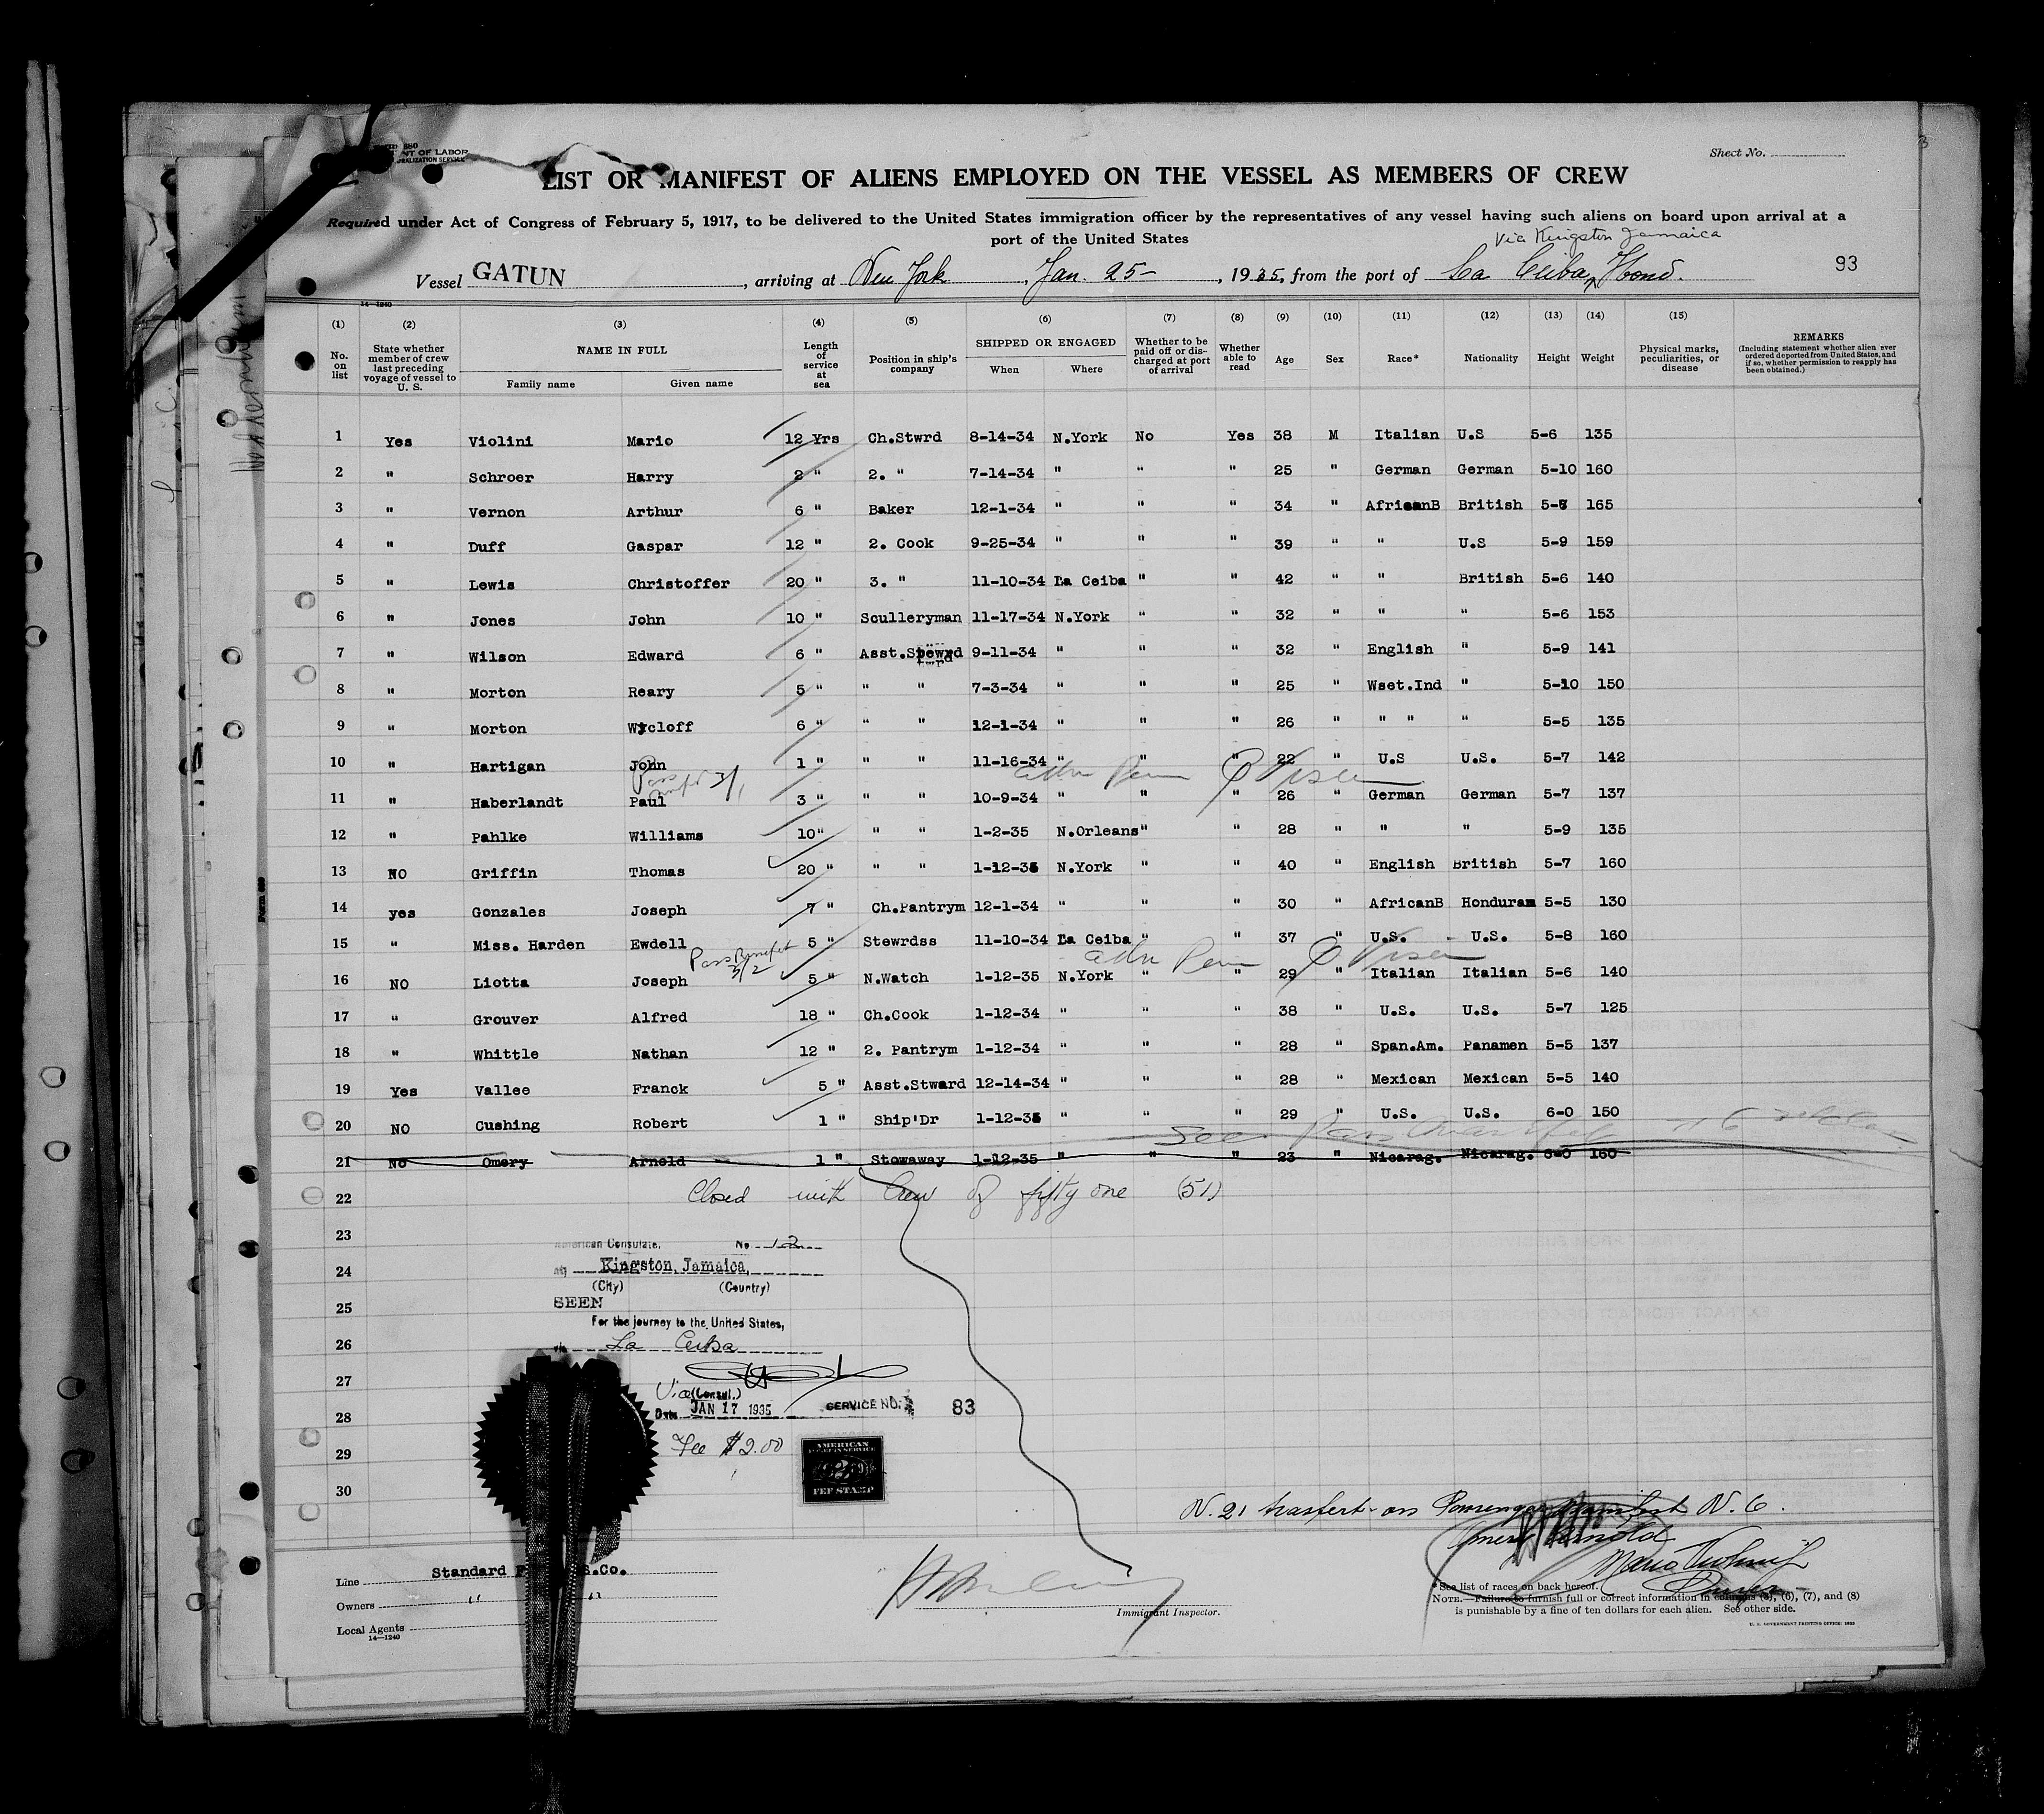 Sheet No.
NT OF LABOR
LIST OR MANIFEST OF ALIENS EMPLOYED ON THE VESSEL AS MEMBERS OF CREW
Required under Act of Congress of February 5, 1917, to be delivered to the United States immigration officer by the representatives of any vessel having such aliens on board upon arrival at a
port of the United States
via Kingston Jamaica
Vessel GATUN, arriving at New York, Jan. 25-, 1935, from the port of La Ceiba, Hond. 93
14-1240
(1) (2) (3) (4) (5) (6) (7) (8) (9) (10) (11) (12) (13) (14) (15)
No. on list State whether member of crew last preceding voyage of vessel to U. S. NAME IN FULL Family name Given name Length of service at sea Position in ship's company SHIPPED OR ENGAGED When Where Whether to be paid off or discharged at port of arrival Whether able to read Age Sex Race* Nationality Height Weight Physical marks, peculiarities, or disease REMARKS (Including statement whether alien ever ordered deported from United States, and if so, whether permission to reapply has been obtained.)
1 Yes Violini Mario 12 Yrs Ch.Stwrd 8-14-34 N.York No Yes 38 M Italian U.S 5-6 135
2 " Schroer Harry 2 " 2. " 7-14-34 " " " 25 " German German 5-10 160
3 " Vernon Arthur 6 " Baker 12-1-34 " " " 34 " AfricanB British 5-8 165
4 " Duff Gaspar 12 " 2. Cook 9-25-34 " " " 39 " " U.S 5-9 159
5 " Lewis Christoffer 20 " 3. " 11-10-34 La Ceiba " " 42 " " British 5-6 140
6 " Jones John 10 " Sculleryman 11-17-34 N.York " " 32 " " " 5-6 153
7 " Wilson Edward 6 " Asst.Stewrd 9-11-34 " " " 32 " English " 5-9 141
8 " Morton Reary 5 " " " 7-3-34 " " " 25 " Wset.Ind " 5-10 150
9 " Morton Wycloff 6 " " " 12-1-34 " " " 26 " " " " 5-5 135
10 " Hartigan John 1 " " " 11-16-34 " " " 22 " U.S U.S. 5-7 142
11 " Haberlandt Paul 3 " " " 10-9-34 " " " 26 " German German 5-7 137
12 " Pahlke Williams 10" " " 1-2-35 N.Orleans " " 28 " " " 5-9 135
13 NO Griffin Thomas 20 " " " 1-12-35 N.York " " 40 " English British 5-7 160
14 yes Gonzales Joseph 7 " Ch.Pantrym 12-1-34 " " " 30 " AfricanB Honduran 5-5 130
15 " Miss. Harden Ewdell 5 " Stewrdss 11-10-34 La Ceiba " " 37 " U.S. U.S. 5-8 160
16 NO Liotta Joseph 5 " N.Watch 1-12-35 N.York " " 29 " Italian Italian 5-6 140
17 " Grouver Alfred 18 " Ch.Cook 1-12-34 " " " 38 " U.S. U.S. 5-7 125
18 " Whittle Nathan 12 " 2. Pantrym 1-12-34 " " " 28 " Span.Am. Panamen 5-5 137
19 Yes Vallee Franck 5 " Asst.Stward 12-14-34 " " " 28 " Mexican Mexican 5-5 140
20 NO Cushing Robert 1 " Ship'Dr 1-12-35 " " " 29 " U.S. U.S. 6-0 150
See Pass
21 No Omery Arnold 1 " Stowaway 1-12-35 " " " 23 " Nicarag. Nicarag. 6-0 160
22 Closed with Crew of fifty one (51)
23
American Consulate, No 12
24 at Kingston, Jamaica,
(City) (Country)
25 SEEN
For the journey to the United States,
26 via La Ceiba
27
Vice (Consul.)
28 Date JAN 17 1935 SERVICE NO. 83
29 Fee $2.00
AMERICAN
FEE STAMP
30
N. 21 trasfert on Passenger Manifest N. 6.
Omery Arnold
Line Standard F S.Co.
Owners " "
Local Agents
14-1240
Immigrant Inspector.
*See list of races on back hereof.
NOTE.—Failure to furnish full or correct information in columns (5), (6), (7), and (8)
is punishable by a fine of ten dollars for each alien. See other side.
U. S. GOVERNMENT PRINTING OFFICE